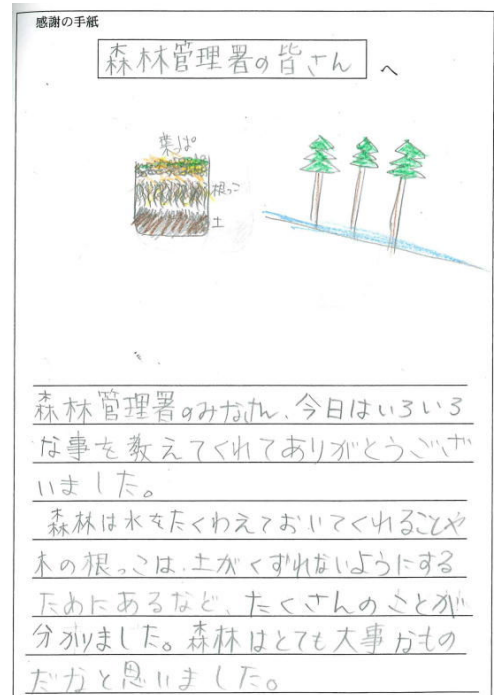 感謝の手紙
森林管理署の皆さん へ
葉っぱ
根っこ
土
森林管理署のみなさん、今日はいろいろ
な事を教えてくれてありがとうござ
いました。
森林は水をたくわえておいてくれることや
木の根っこは、土がくずれないようにする
ためにあるなど、たくさんのことが
分かりました。森林はとても大事なもの
だなと思いました。